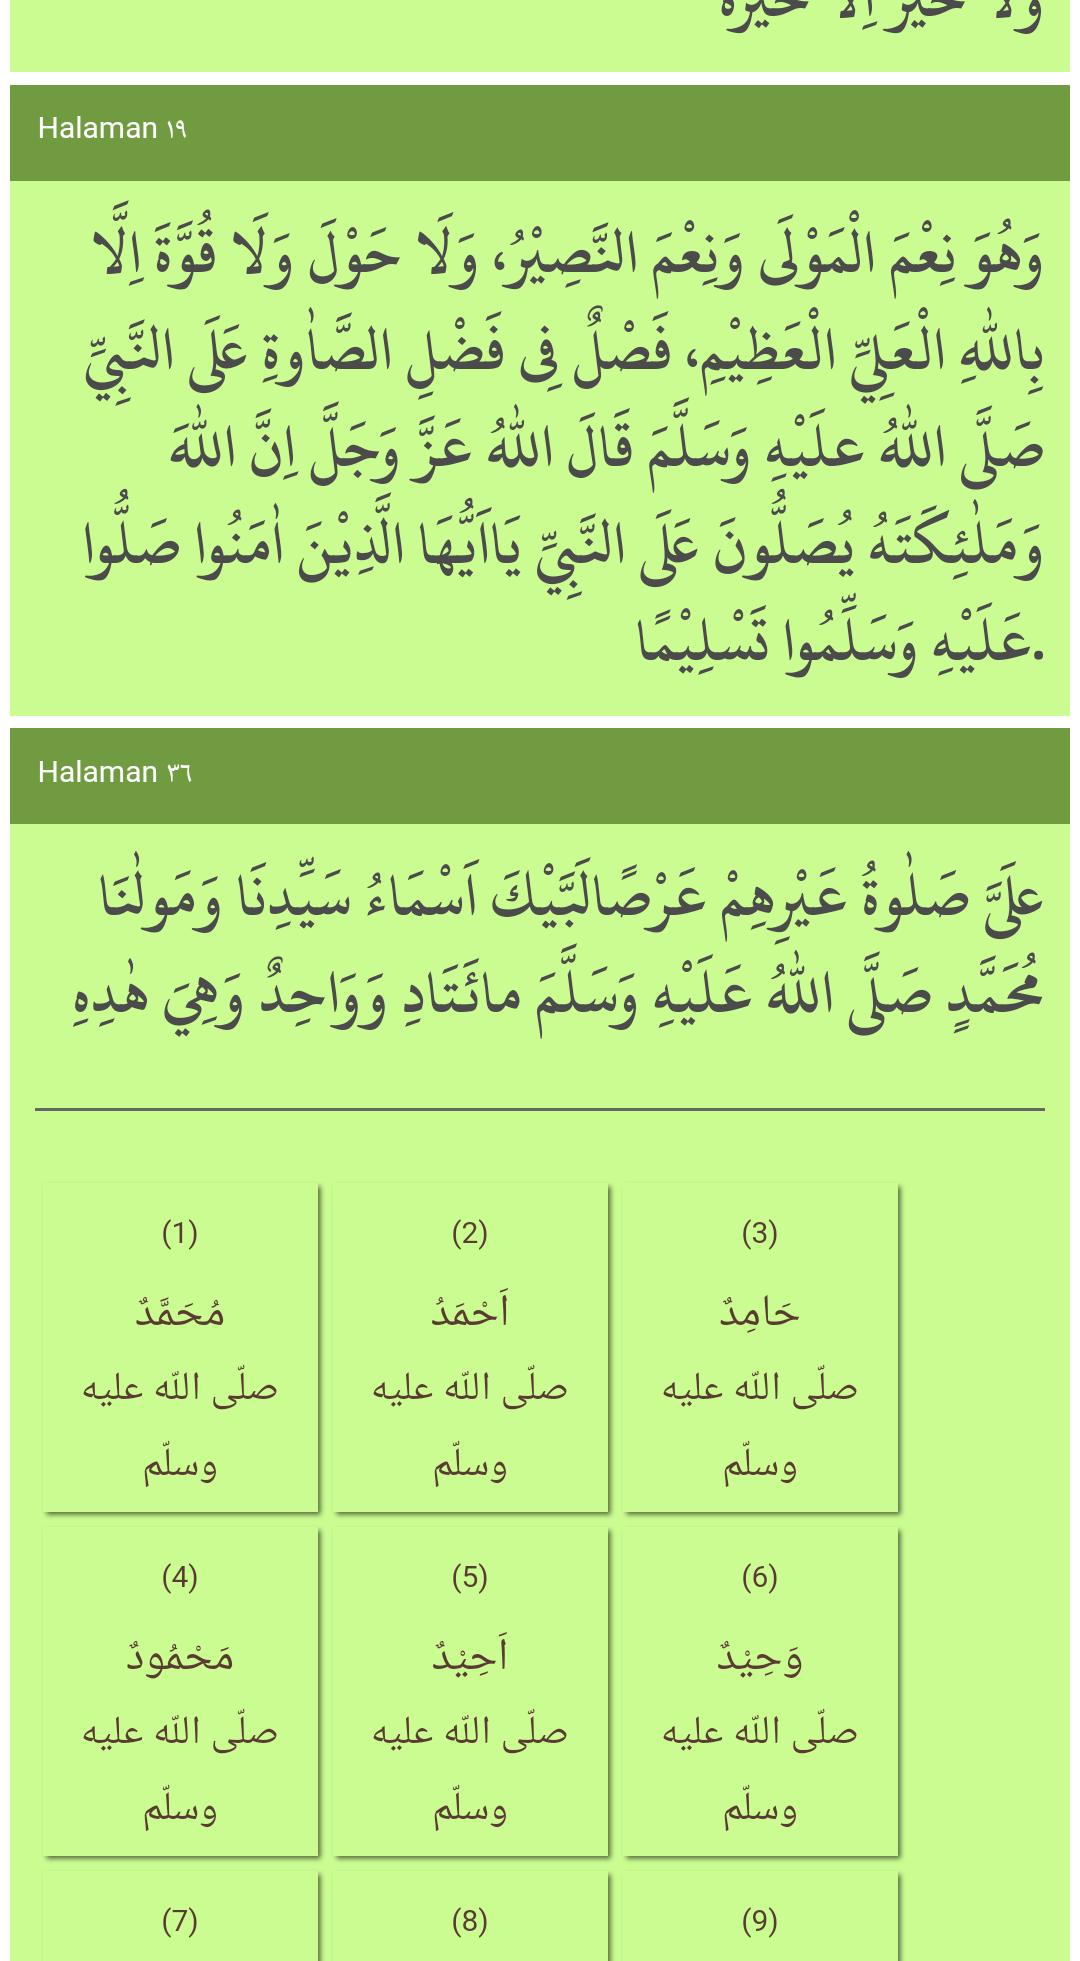 ولا خير إلا خيره
Halaman ١٩
وَهُوَ نِعْمَ الْمَوْلَى وَنِعْمَ النَّصِيْرُ، وَلَا حَوْلَ وَلَا قُوَّةَ اِلَّا
بِاللهِ الْعَلِيِّ الْعَظِيْمِ، فَصْلٌ فِى فَضْلِ الصَّلٰوةِ عَلَى النَّبِيِّ
صَلَّى اللهُ علَيْهِ وَسَلَّمَ قَالَ اللهُ عَزَّ وَجَلَّ اِنَّ اللهَ
وَمَلٰئِكَتَهُ يُصَلُّونَ عَلَى النَّبِيِّ يَااَيُّهَا الَّذِيْنَ اٰمَنُوا صَلُّوا
عَلَيْهِ وَسَلِّمُوا تَسْلِيْمًا.
Halaman ٣٦
علَيَّ صَلٰوةُ عَيْرِهِمْ عَرْصًالَبَّيْكَ اَسْمَاءُ سَيِّدِنَا وَمَولٰنَا
مُحَمَّدٍ صَلَّى اللهُ عَلَيْهِ وَسَلَّمَ مائَتَادِ وَوَاحِدٌ وَهِيَ هٰدِهِ
(1) (2) (3)
مُحَمَّدٌ اَحْمَدُ حَامِدٌ
صلّى اللّه عليه صلّى اللّه عليه صلّى اللّه عليه
وسلّم وسلّم وسلّم
(4) (5) (6)
مَحْمُودٌ اَحِيْدٌ وَحِيْدٌ
صلّى اللّه عليه صلّى اللّه عليه صلّى اللّه عليه
وسلّم وسلّم وسلّم
(7) (8) (9)